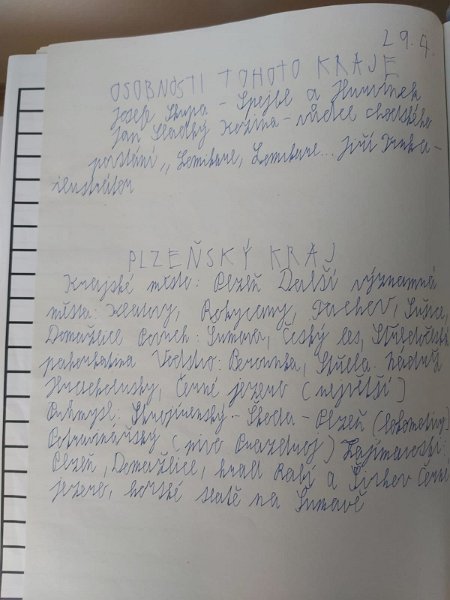 29.4.
OSOBNOSTI TOHOTO KRAJE
Josef Skupa - Spejbl a Hurvínek
Jan Sladký Kozina - vůdce chodského
povstání „Lomikare, Lomikare... Jiří Trnka -
ilustrátor
PLZEŇSKÝ KRAJ
Krajské město: Plzeň Další významná
města: Klatovy, Rokycany, Tachov, Sušice,
Domažlice Povrch: Šumava, Český les,
pahorkatina Vodstvo: Berounka, Střela. nádrž
Hracholusky, Černé jezero (největší)
Průmysl: Strojírenský - Škoda - Plzeň (lokomotivy)
Potravinářský (pivo Prazdroj) Zajímavosti:
Plzeň, Domažlice, hrad Rabí a Černé
jezero, horské slatě na Šumavě